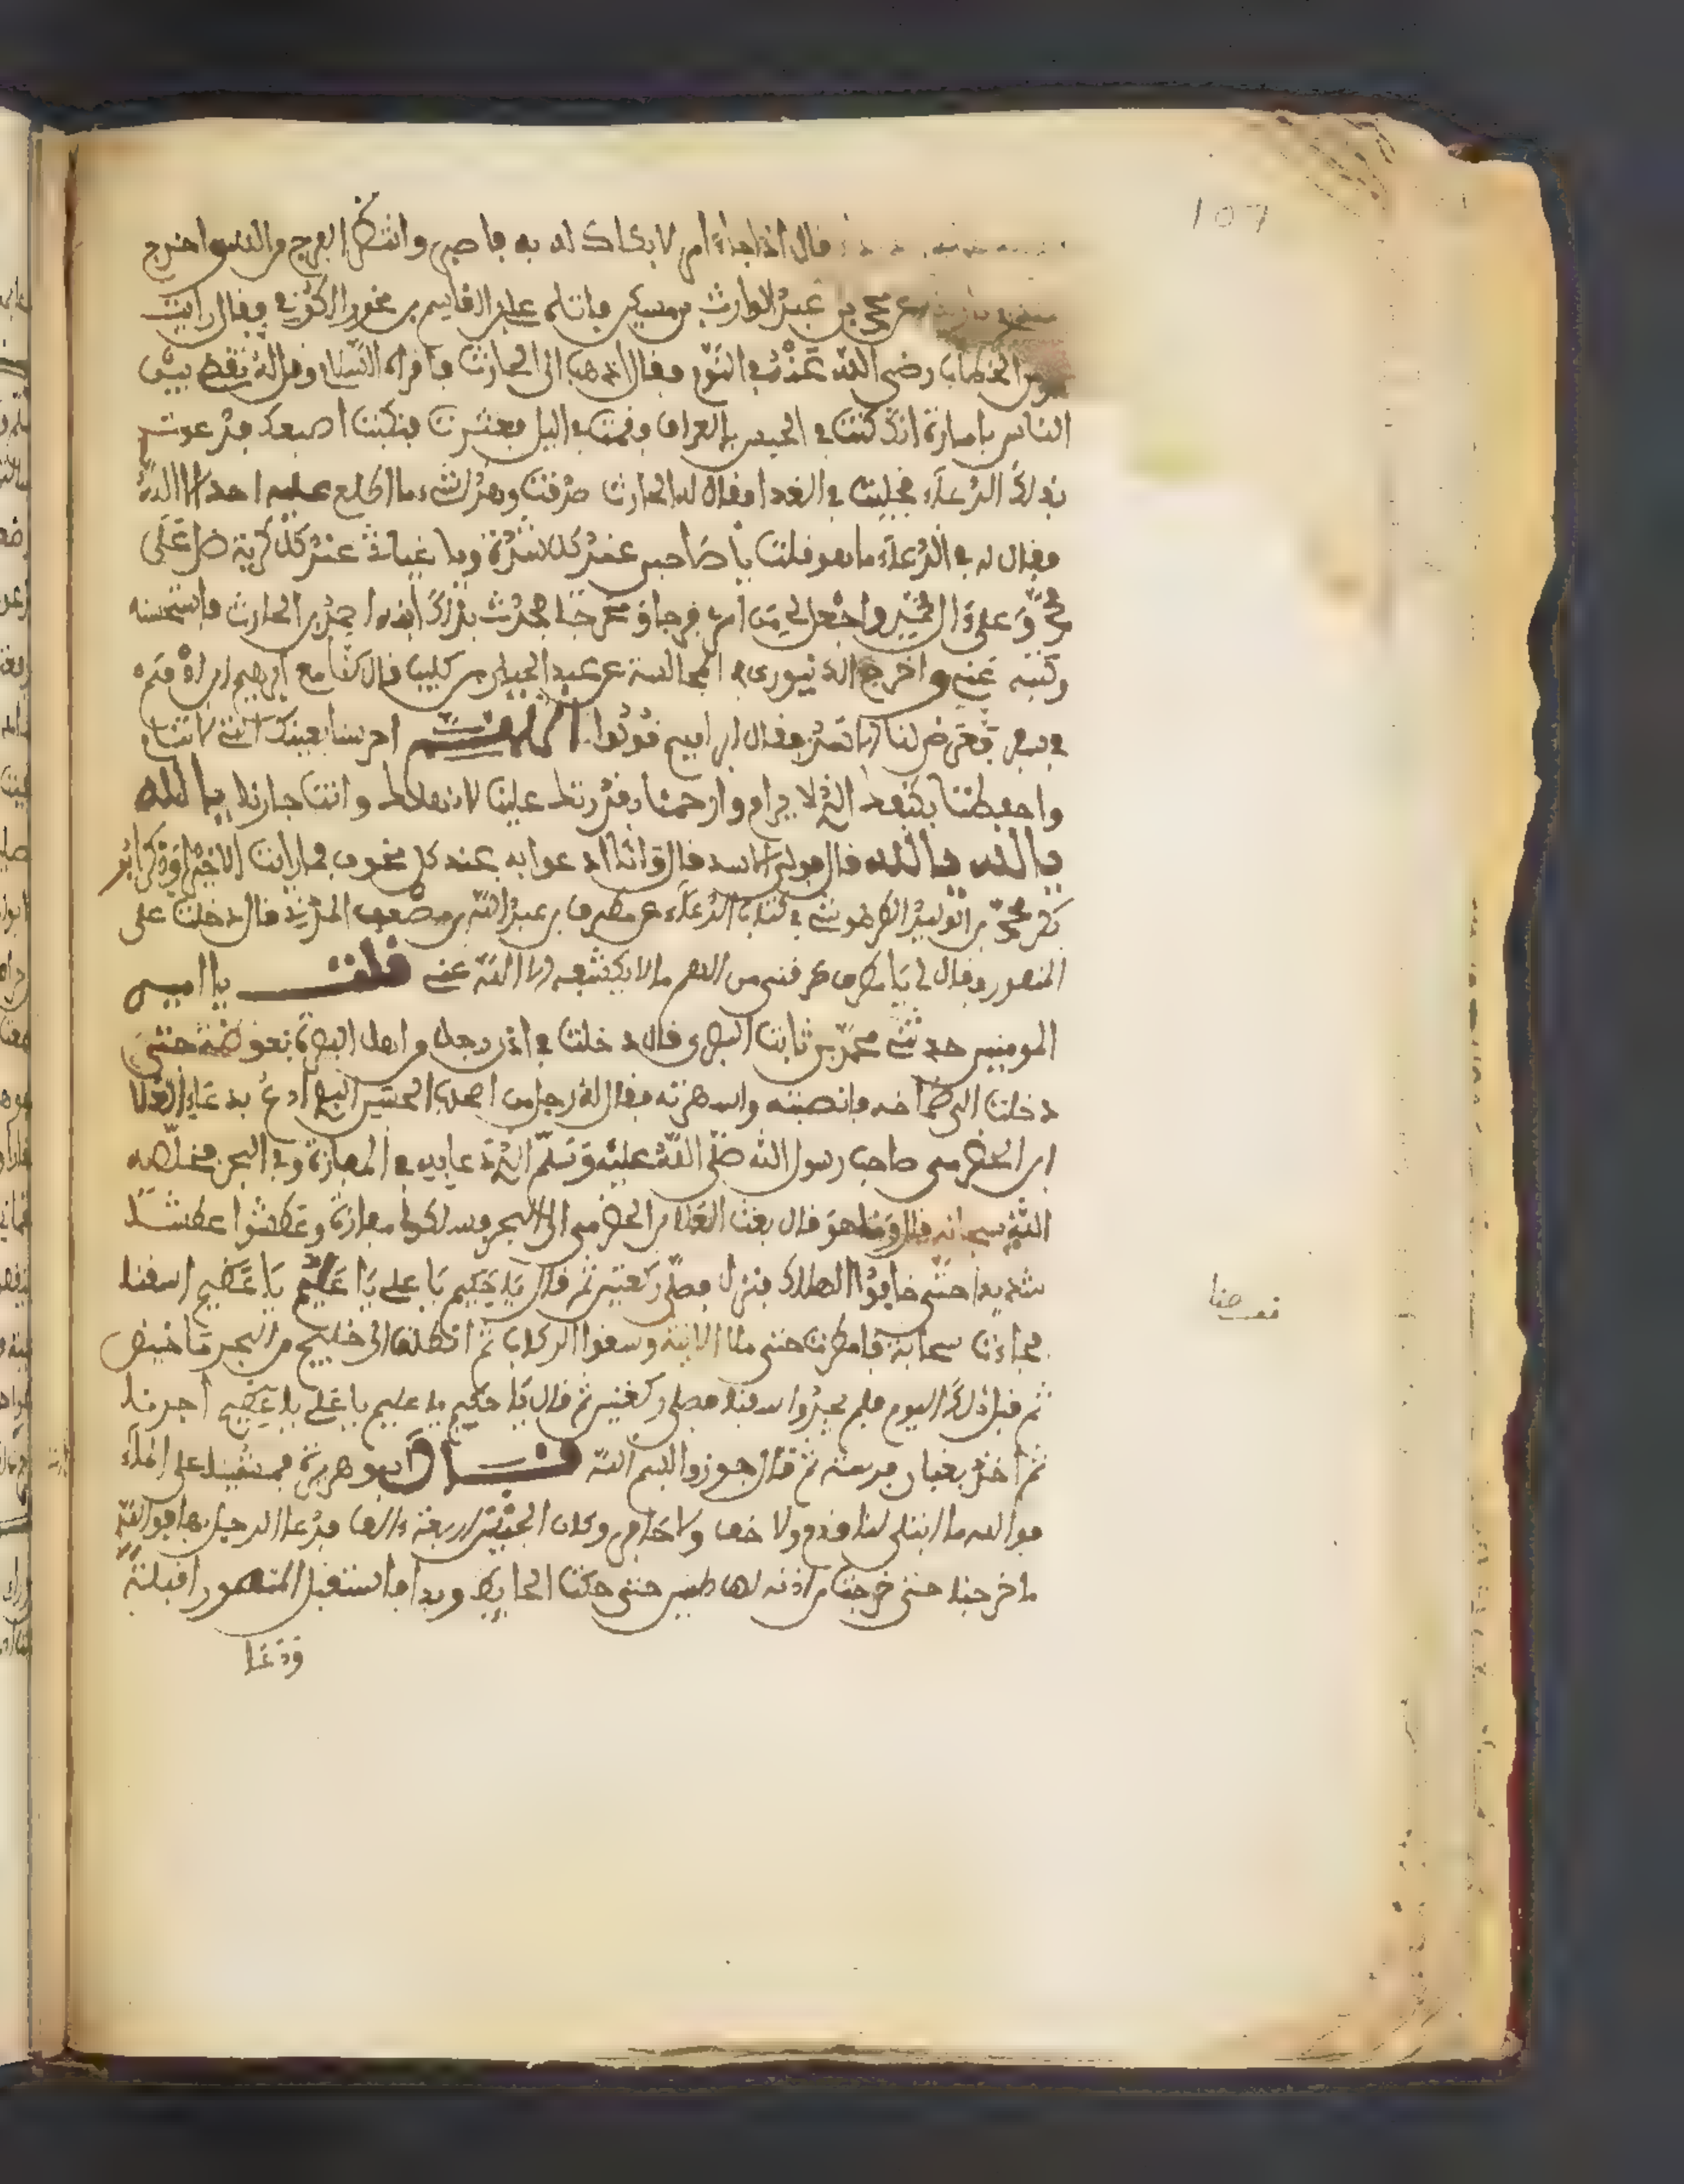 107
قال اذا جاءك امر لا يكاد له به فاصبر وانتظر الفرج من الله واخرج
عن محمد بن عبد الوارث بن مسكين فاتاه علي القاسم بن الكوفي فقال رايت
بن الخطاب رضي الله عنه في النوم فقال اذهب الى الحارث فاقره السلام وقل له تقضي بين
الناس بامارة انك كنت في الحبس بالعراق وقمت في اليل فعثرت فنكبت اصبعك فدعوت
بذلك الدعاء فخليت في الغد فقال له الحارث صدقت وهذا شيء ما اطلع عليه احد الا الله
فقال له في الدعاء ما هو قلت يا صاحبي عند كل شدة ويا غياثي عند كل كربة صل على
محمد وعلى ءال محمد واجعل لي من امري فرجا ومخرجا فحدث بذلك ابنه احمد بن الحارث فاستحسنه
وكتبه عنه واخرج الدينوري في المجالسة عن عبد الجبار بن كليب قال كنا مع ابرهيم بن ادهم
في سفر فعرض لنا الاسد فقال ابراهيم قولوا اللهم احرسنا بعينك التي لا تنام
واحفظنا بكنفك الذي لا يرام وارحمنا بقدرتك علينا لا نهلك وانت رجاؤنا يا الله
يا الله يا الله قال فولى الاسد قال وانا ادعوا به عند كل مخوف فما رايت الا خيرا وذكر ابو
بكر محمد بن الوليد الطرطوشي في كتاب الدعاء عن مطرف بن عبد الله بن مصعب المدني قال دخلت على
المنصور وقال لي يا مطرف طرقني من الهم ما لا يكشفه الا الله عنه قلت يا امير
المومنين حدثني محمد بن ثابت البصري قال دخلت في اذن رجل من اهل البصرة بعوضة حتى
دخلت الى صماخه فانصبته واسهرته فقال له رجل من اصحاب الحسن البصري ادع بدعاء العلا
ابن الحضرمي صاحب رسول الله صلى الله عليه وسلم الذي دعا به في المفازة وفي البحر فخلصه
الله سبحانه قال وما هو قال بعث العلا بن الحضرمي الى البحرين فسلكوا مفازة وعطشوا عطشا
شديدا حتى خافوا الهلاك فنزل فصلى ركعتين ثم قال يا حكيم يا علي يا عليم يا عظيم اسقنا
فجاءت سحابة فامطرت حتى ملا الانية وسقوا الركاب ثم انطلق الى خليج من البحر ما خيض
ثم قبل ذلك اليوم فلم يجدوا سفنا فصلى ركعتين ثم قال يا حكيم يا عليم يا علي يا عظيم اجزنا
ثم اخذ بعنان فرسه ثم قال جوزوا بسم الله قال ابو هريرة فمشينا على الماء
فوالله ما ابتل لنا قدم ولا خف ولا حافر وكان الجيش اربعة ءالاف فدعا الرجل بها فوالله
ما خرجنا حتى خرجت من اذنه لها طنين حتى حكت الحائط وبرا فاستقبل المنصور القبلة
ودعا